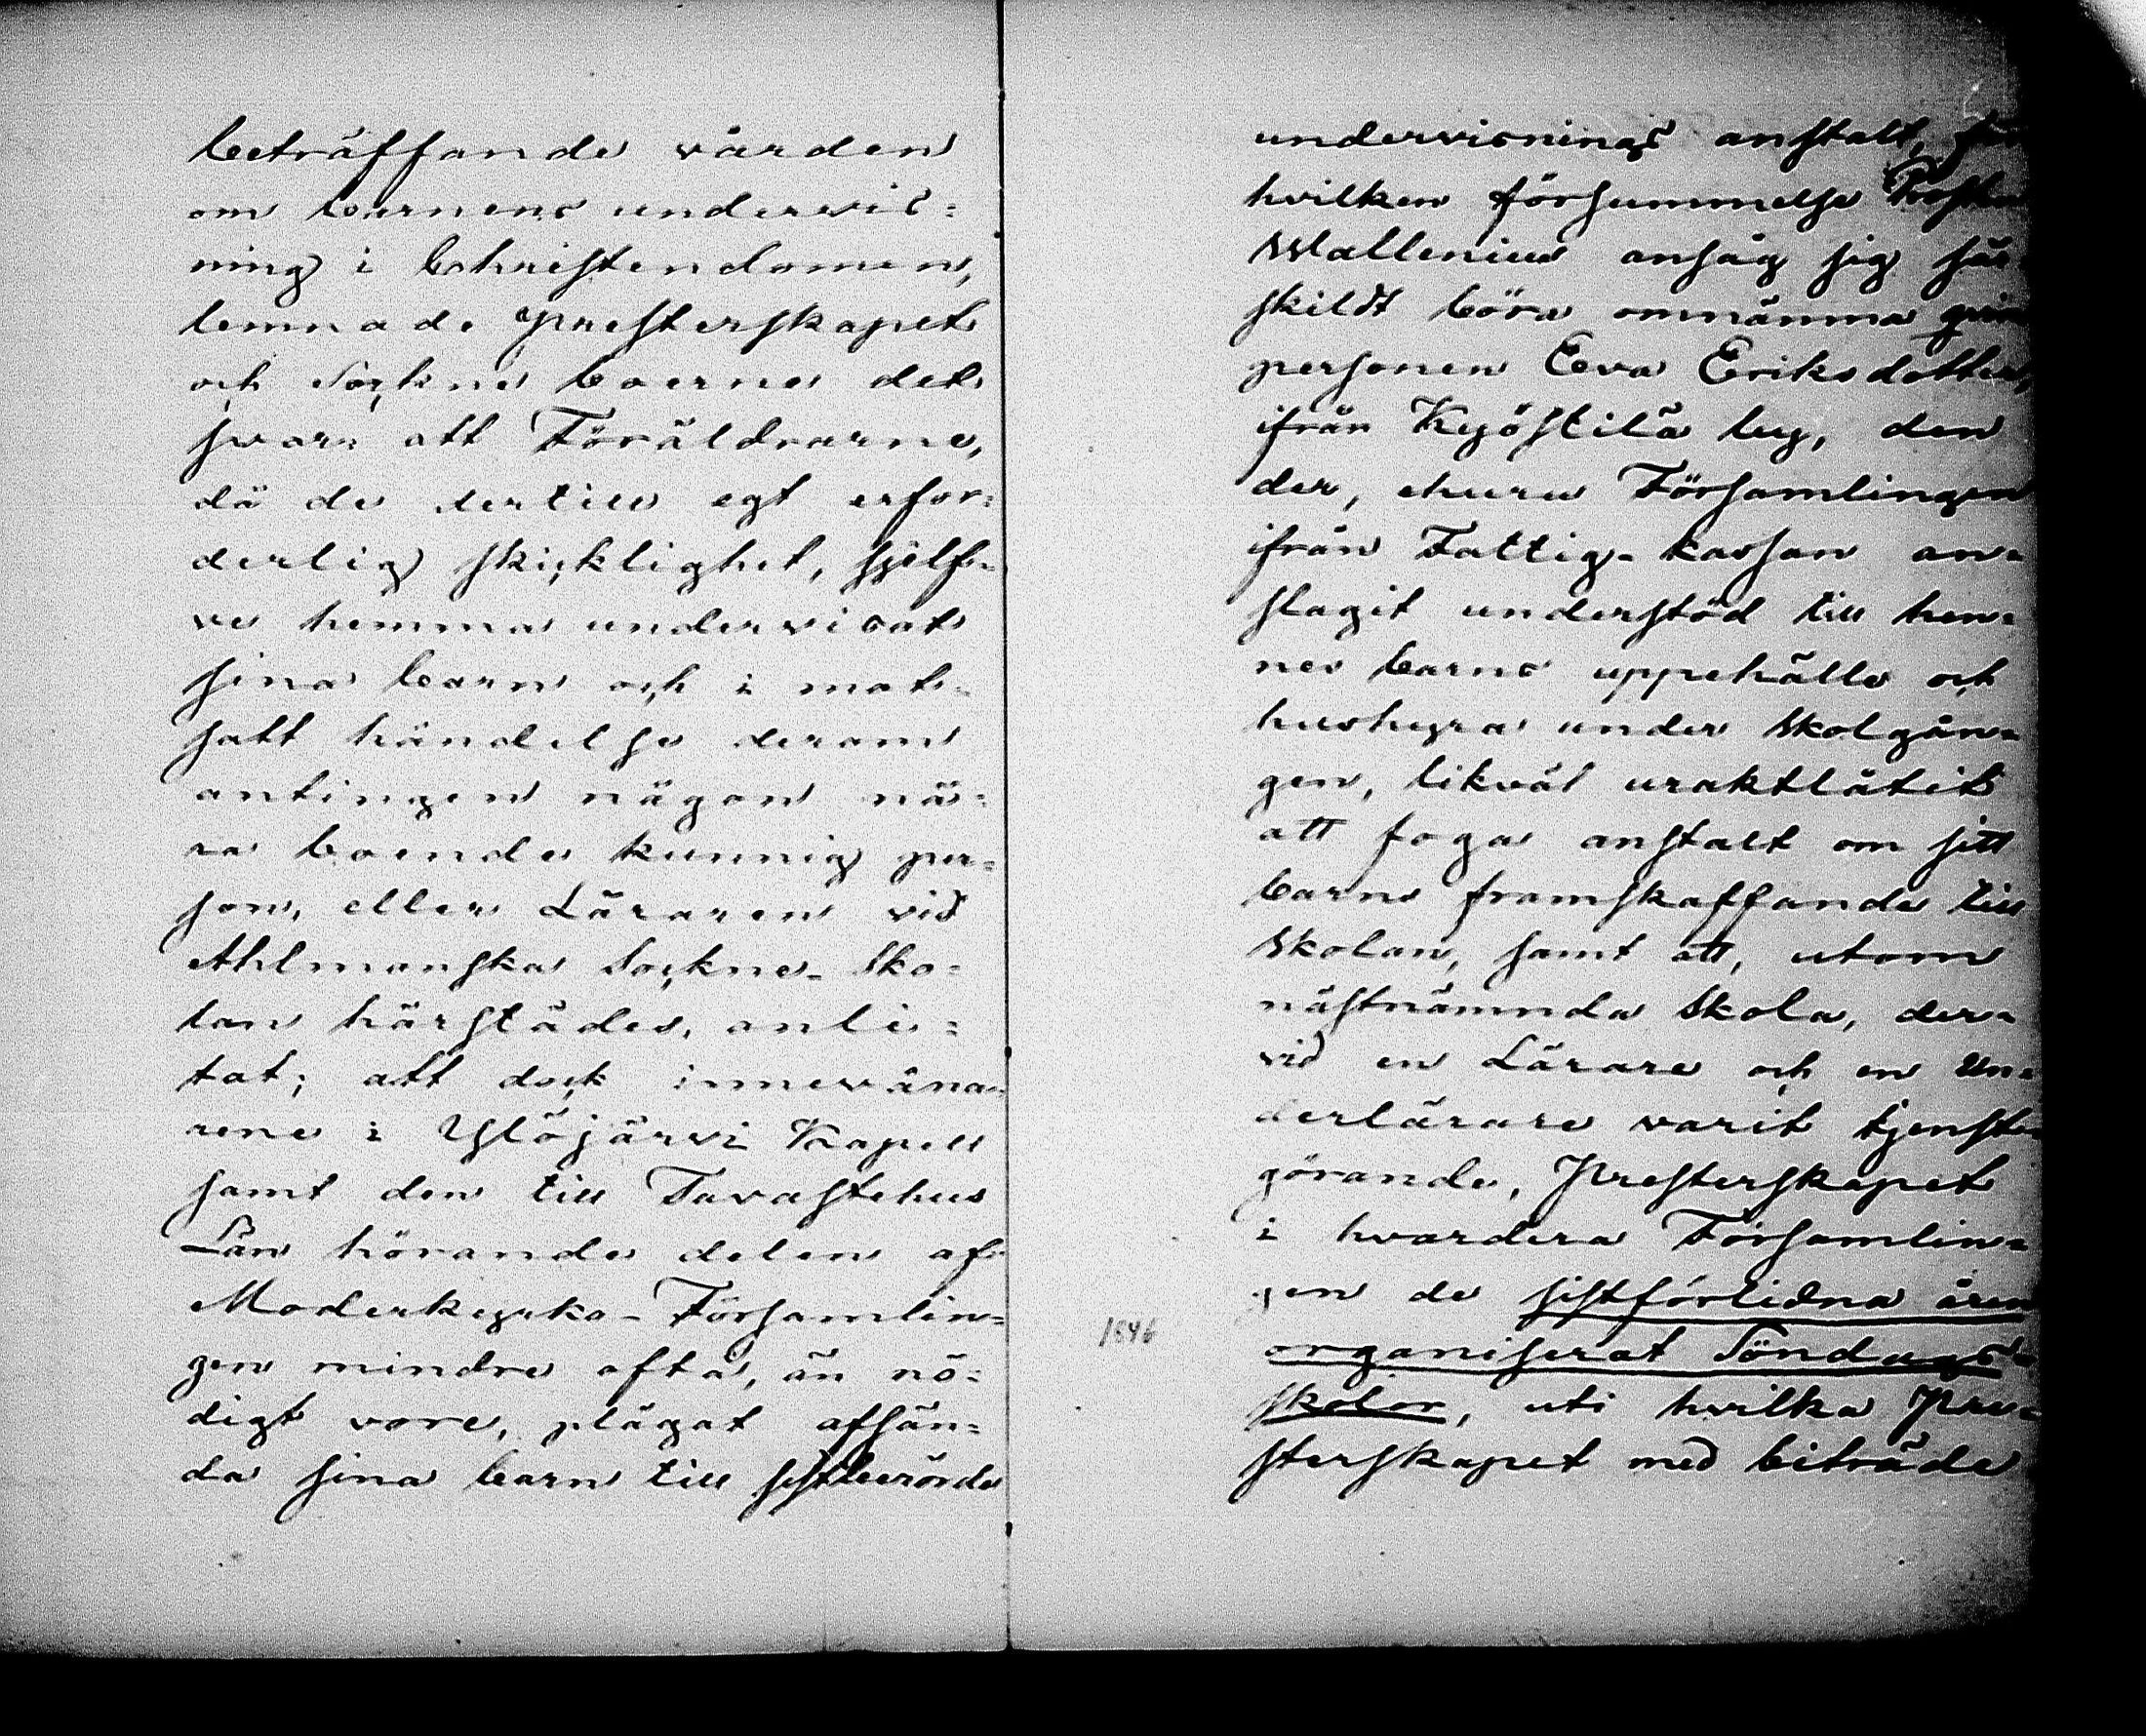 beträffande vården
om barnens undervis=
ning i Christendomen,
lemnade Presterskapet
och Sockne boerne det
svar: att Föräldrarne,
då de dertill egt erfor=
derlig skicklighet, sjelf=
ve hemma undervisat
sina barn och i mot=
satt händelse derom
antingen någon nä=
ra boende kunnig per=
son, eller Läraren vid
Ahlmanska Sockne-Sko=
lan härstädes, anli=
tat; att dock innevåna=
rene i Ylöjärvi Kapell
samt den till Tavastehus
Län hörande delen af
Moderkyrko-Församlin=
gen mindre ofta, än nö=
digt vore, plägat afsän=
da sina barn till sistberörde
undervisnings anstalt, för
hvilken försummelse Prosten
Wallenius ansåg sig sär=
skildt böra omnämna qvins
personen Eva Eriksdotter,
ifrån Kyöstilä by, den
der, ehuru Församlingen
ifrån Fattig-kassan an=
slagit understöd till hen=
nes barns uppehälle och
hushyra under skolgån=
gen, likväl uraktlåtit
att foga anstalt om sitt
barns framskaffande till
skolan, samt att, utom
nästnämnda Skola, der=
vid en Lärare och en Un=
derlärare varit tjenste=
görande, Presterskapet
i hvardera Församlin=
gen de sistförlidna åren
1846
organiserat Söndags
skolor, uti hvilka Pre=
sterskapet med biträde